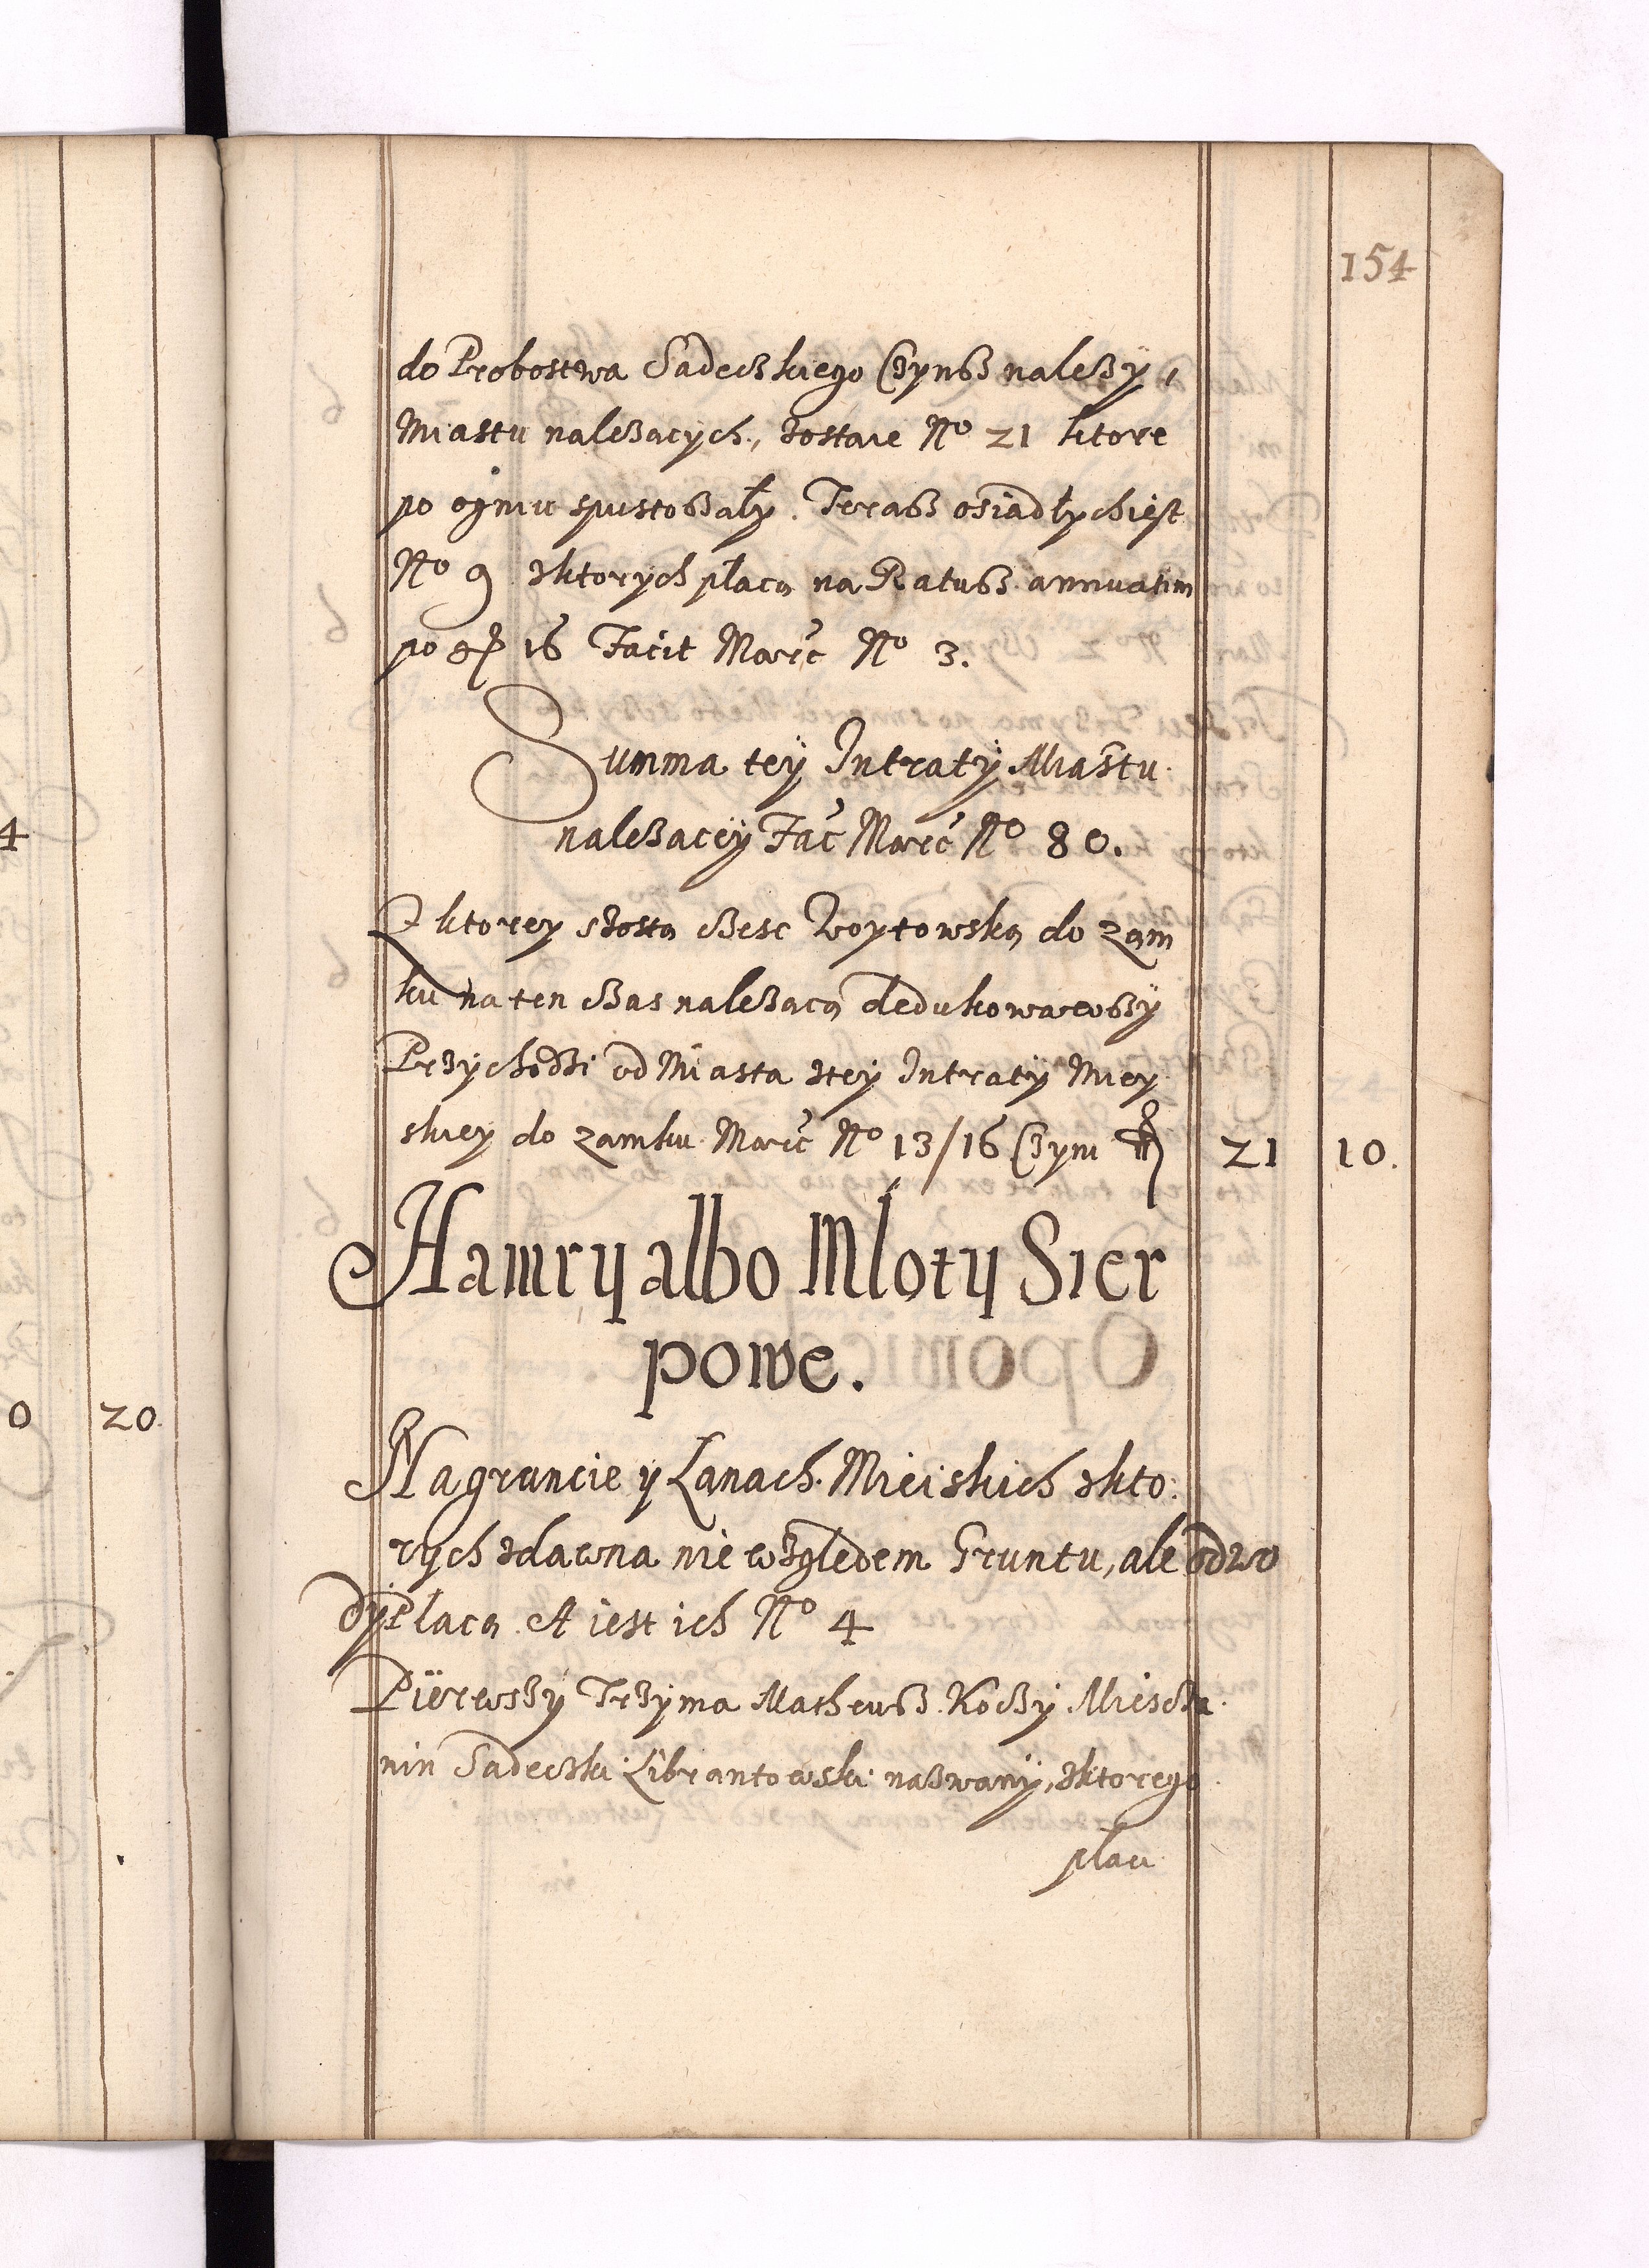 154
do Probostwa Sadeczkiego Czynsz należy,
Miastu należacych, zostaie No 21 ktore
po ogniu spustoszały. Terasz osiadłych iest
No 9 zktorych płacą na Ratusz annuatim
po gr 16 Facit Marc No 3.
Summa tey Intraty Miastu
należacey Fac Marc No 80.
Z ktorey szostą część Woytowską do zam
ku na ten czas należacą dedukowawszy
Przychodzi od Miasta ztey Intraty Miey
skiey do zamku Marc No 13/16 Czyni fl 21 10.
Hamry albo Mloty Sier
powe.
Na gruncie y Łanach Mieiskich zkto
rych zdawna nie względem Gruntu, ale od wo
dy Płacą. A iest ich No 4
Pierwszy Trzyma Matheusz Koczy Miescza
nin Sadeczki Librantowski nazwany, zktorego
płaci
4
0 20